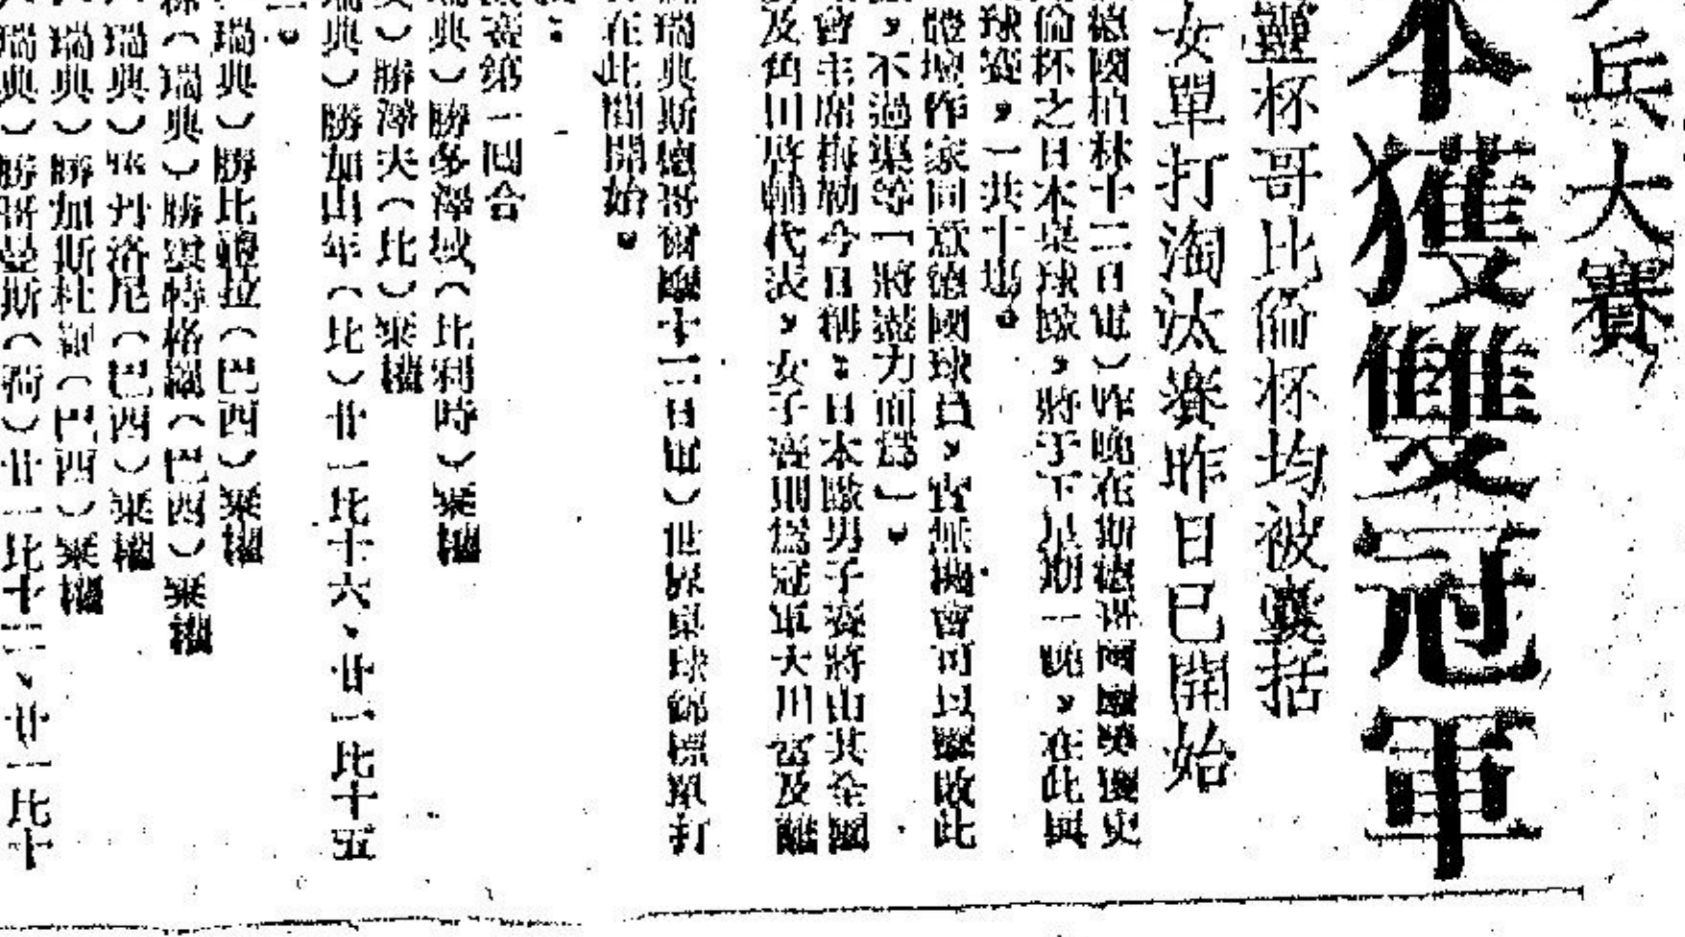 兵大賽
本獲雙冠軍
靈杯哥比倫杯均被囊括
女單打淘汰賽昨日已開始
德國柏林十二日電）昨晚在斯德哥爾
倫杯之日本桌球隊，將于下星期一晚，在此與
球賽，一共十場。
體壇作家同意德國球員，實無機會可以擊敗此
，不過渠等「將盡力而爲」。
會主席梅勒今日稱：日本隊男子賽將由其全國
及角川啓輔代表，女子賽則爲冠軍大川富及
瑞典斯德哥爾 十二日電）世界桌球錦標單打
在此間開始。
：
賽第一回合
典）勝麥澤域（比利時）棄權
）勝澤夫（比）棄權
瑞典）勝加山年（比）廿一比十六、廿一比十五
。
瑞典）勝比 拉（巴西）棄權
（瑞典）勝雲特格 （巴西）棄權
瑞典） 丹洛尼（巴西）棄權
瑞典）勝加斯杜 （巴西）棄權
瑞典）勝哥曼斯（荷）廿一比十三、廿一比十